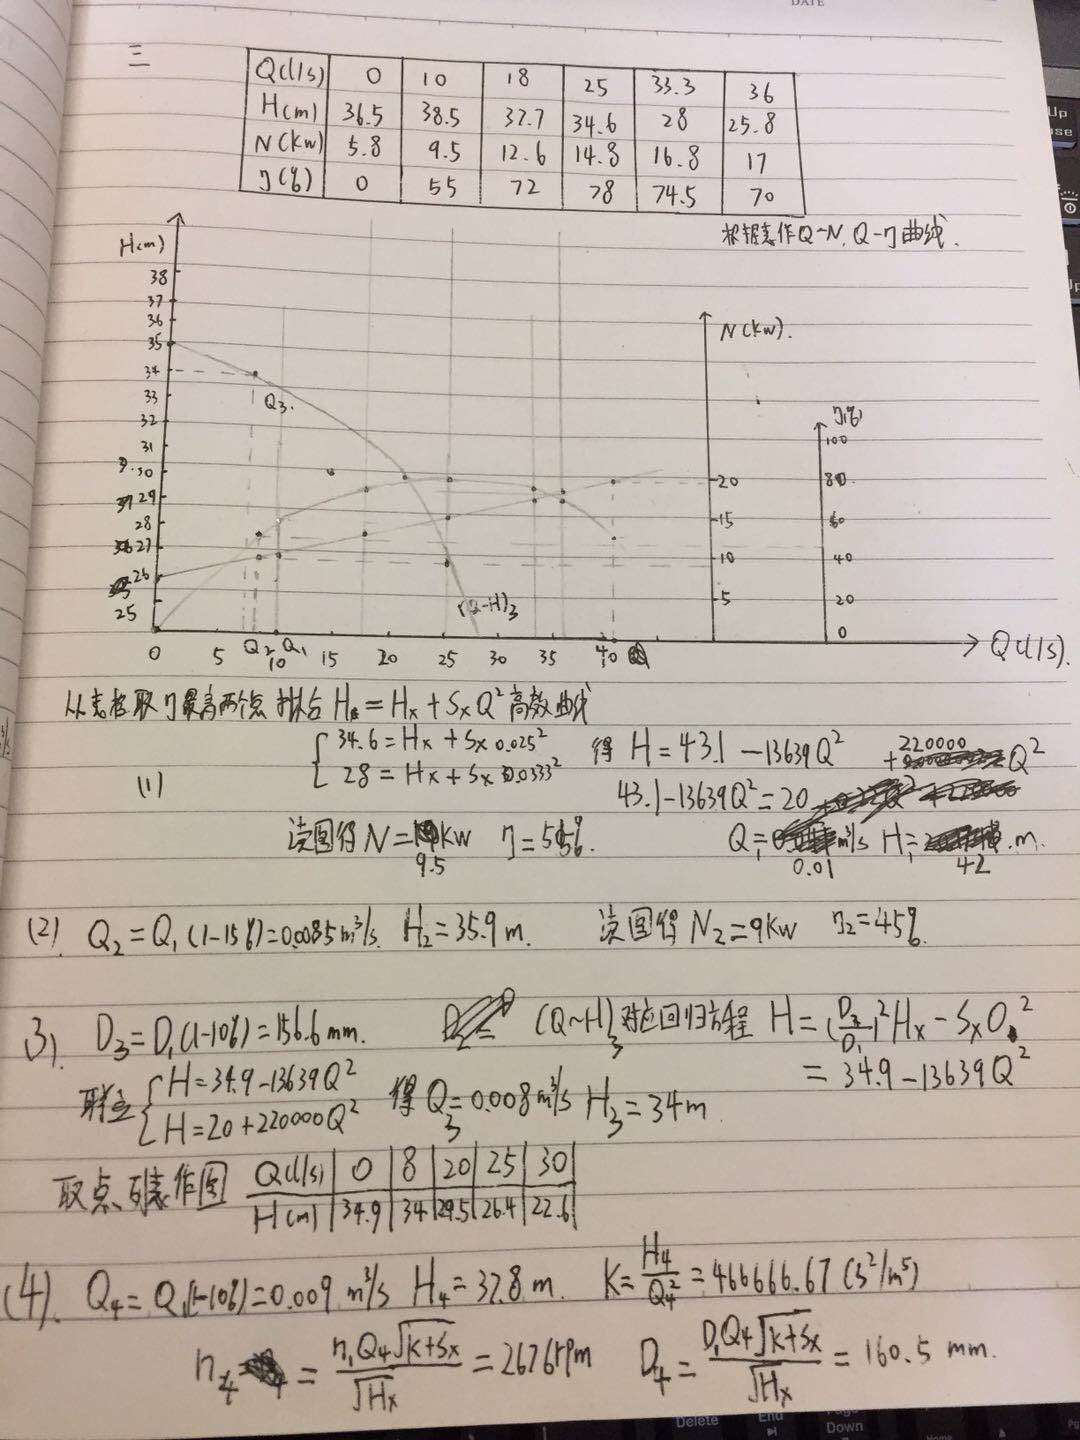 DATE
三
Q(l/s) 0 10 18 25 33.3 36
H(m) 36.5 38.5 37.7 34.6 28 25.8
N(kw) 5.8 9.5 12.6 14.8 16.8 17
η(%) 0 55 72 78 74.5 70
根据表作Q~N, Q-η曲线.
H(m)
38
37
36
35
34
33
32
31
30
29
28
27
26
25
Q3.
(Q-H)3
N(kw).
20
15
10
5
η(%)
100
80
60
40
20
0
0 5 Q2 10 Q1 15 20 25 30 35 40 Q(l/s).
从表格取η最高两个点 拟合 H = Hx + SxQ² 高效曲线
(1)
34.6 = Hx + Sx 0.025² 得 H = 43.1 - 13639Q² + 220000 Q²
28 = Hx + Sx 0.0333² 43.1 - 13639Q² = 20
读图得 N = 9.5 kw η = 55%. Q1 = 0.01 m³/s H1 = 42 m.
(2) Q2 = Q1(1-15%) = 0.0085 m³/s. H2 = 35.9 m. 读图得 N2 = 9kw η2 = 45%.
3). D3 = D1(1-10%) = 156.6 mm. (Q~H)3 对应回归方程 H = (D3/D1)²Hx - SxQ²
= 34.9 - 13639Q²
联立 { H = 34.9 - 13639Q² 得 Q3 = 0.008 m³/s H3 = 34m.
H = 20 + 220000Q²
取点、列表作图 Q(l/s) 0 8 20 25 30
H(m) 34.9 34 29.5 26.4 22.6
(4). Q4 = Q1(1-10%) = 0.009 m³/s H4 = 37.8 m. K = H4/Q4² = 466666.67 (s²/m⁵)
n4 = n1Q4√(K+Sx)/√Hx = 2676rpm D4 = D1Q4√(K+Sx)/√Hx = 160.5 mm.
Delete
End
Down
Home